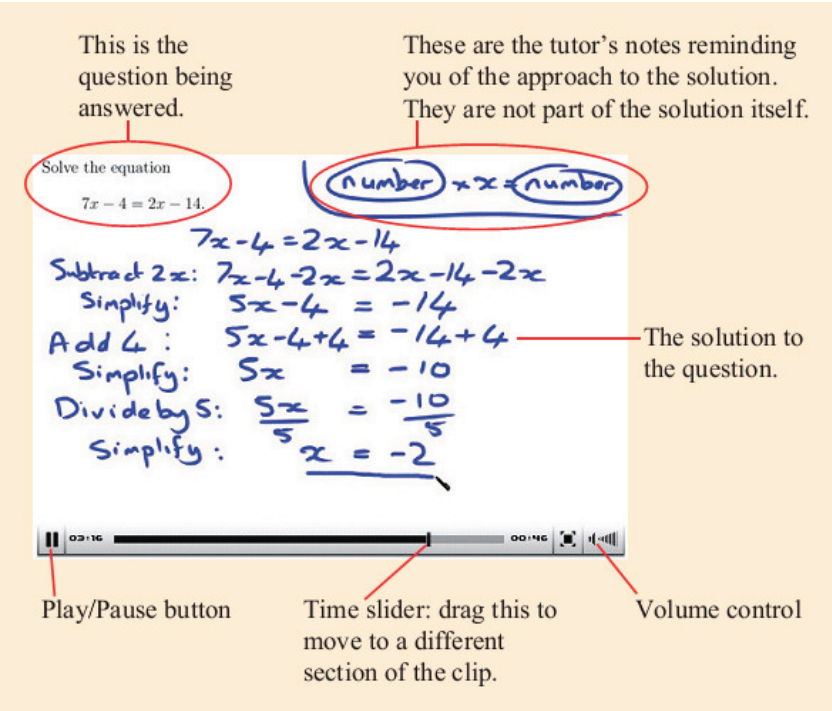 This is the
question being
answered.
These are the tutor's notes reminding
you of the approach to the solution.
They are not part of the solution itself.
Solve the equation
7x − 4 = 2x − 14.
number × x = number
7x-4=2x-14
Subtract 2x: 7x-4-2x=2x-14-2x
Simplify: 5x-4 = -14
Add 4: 5x-4+4 = -14+4
Simplify: 5x = -10
Divide by 5: 5x/5 = -10/5
Simplify: x = -2
The solution to
the question.
03:16
00:46
Play/Pause button
Time slider: drag this to
move to a different
section of the clip.
Volume control